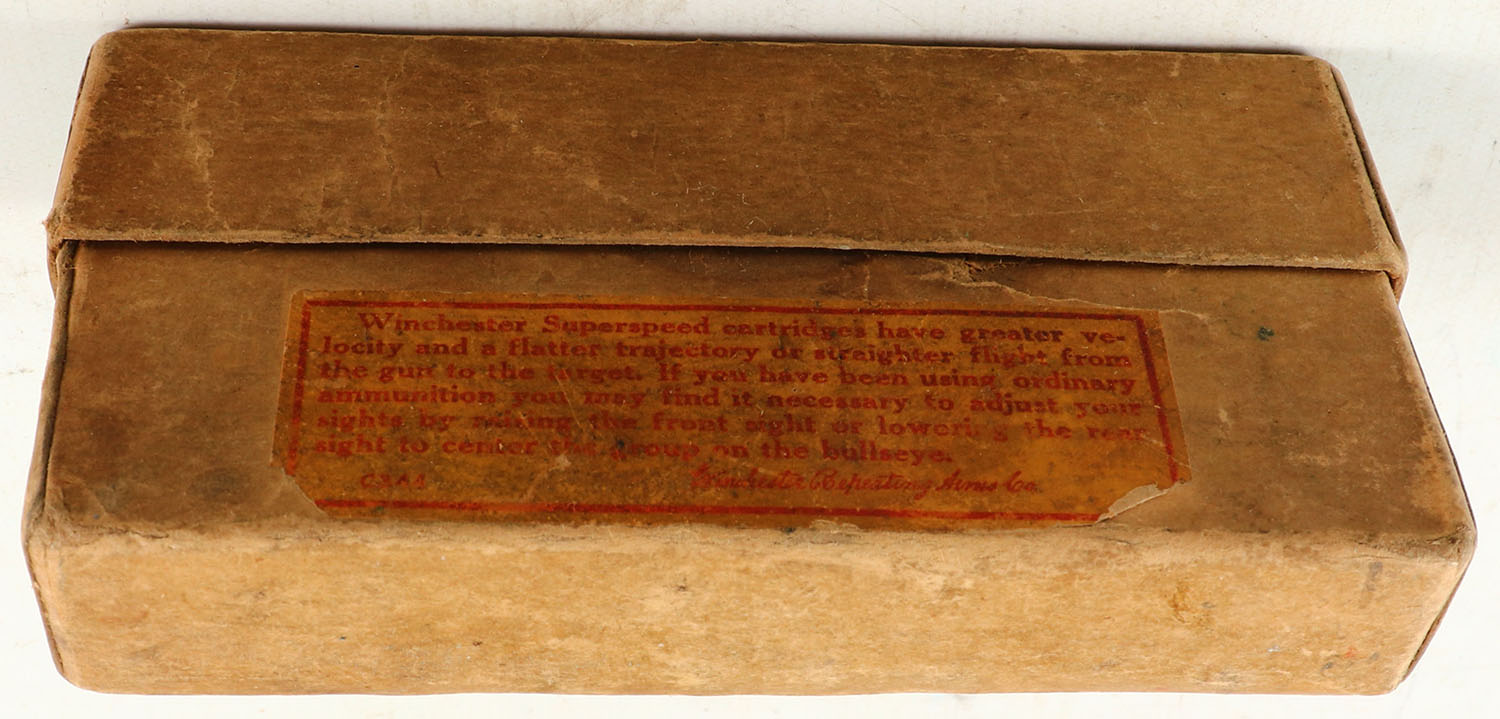 Winchester Superspeed cartridges have greater ve-
locity and a flatter trajectory or straighter flight from
the gun to the target. If you have been using ordinary
ammunition you may find it necessary to adjust your
sights by raising the front sight or lowering the rear
sight to center the group on the bullseye.
Winchester Repeating Arms Co.